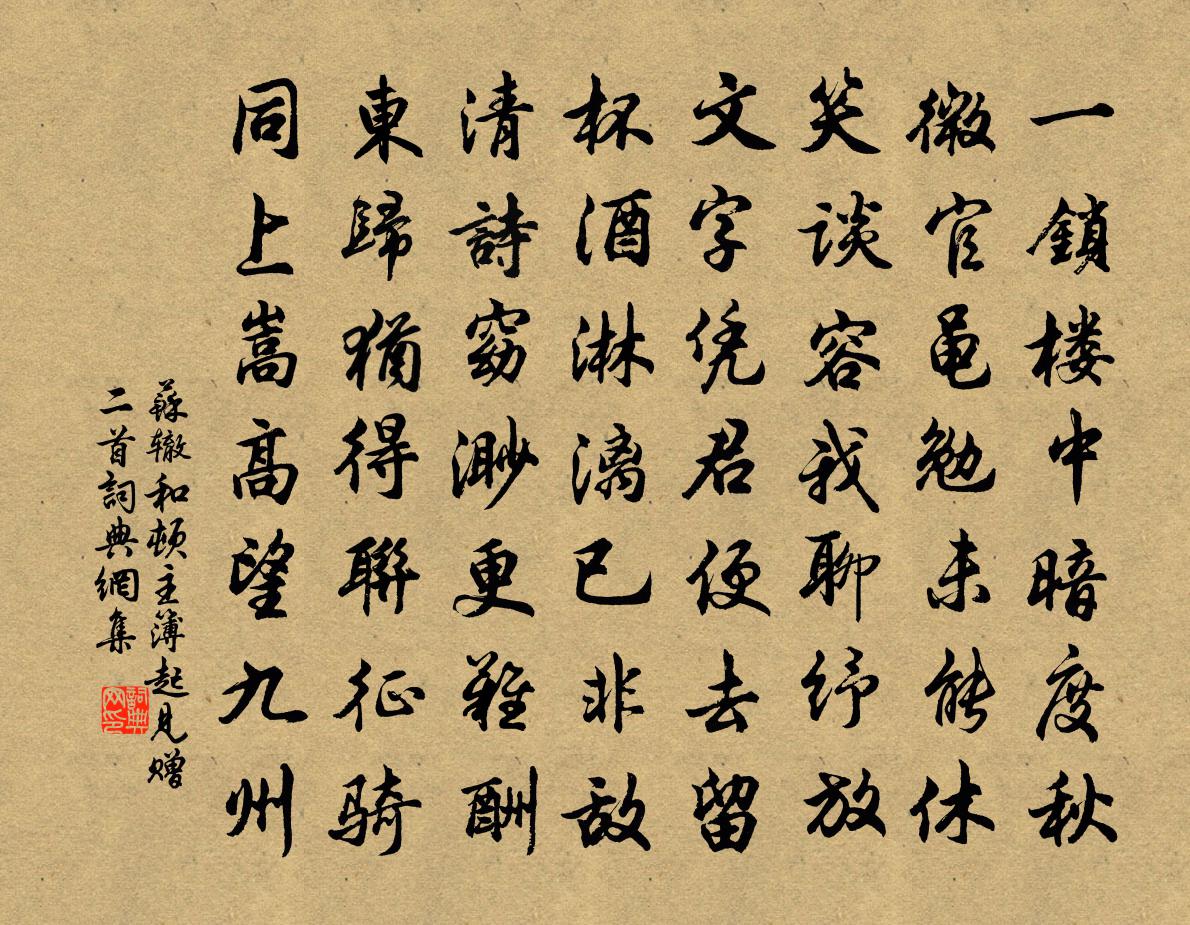 一鎖楼中暗度秋
微官黽勉未能休
笑談容我聊紓放
文字凭君便去留
杯酒淋漓已非敌
清詩窈渺更難酬
東歸猶得聯征騎
同上嵩高望九州
蘇辙和頓主簿起見赠
二首詞典網集
詞典网印